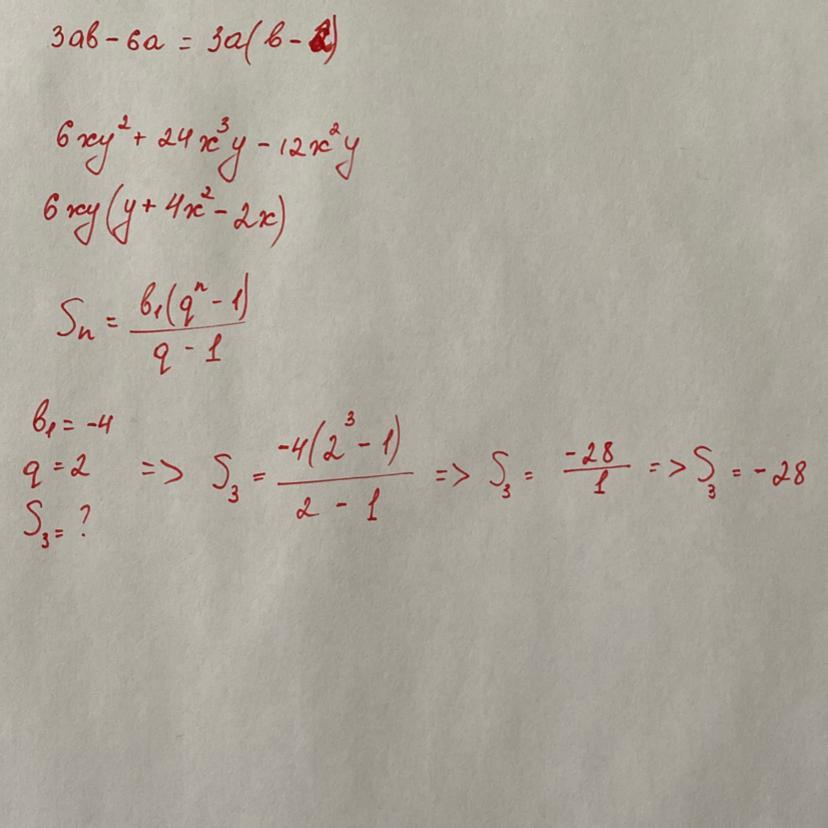 3ab - 6a = 3a(b - )
6xy² + 24x³y - 12x²y
6xy(y + 4x² - 2x)
Sₙ = b₁(qⁿ - 1) / q - 1
b₁ = -4
q = 2 => S₃ = -4(2³ - 1) / 2 - 1 => S₃ = -28 / 1 => S₃ = -28
S₃ = ?